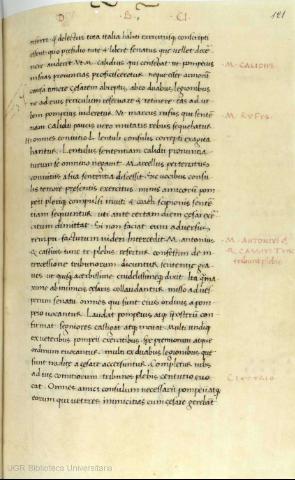 D. B. CI.
121
mitteret & delectus tota italia habiti exercitusq; conscripti
essent quo presidio tute & libere senatus que vellet decer
nere auderet. Vt M. calidius qui censebat ut pompeius
in suas provincias proficisceretur neque esset armorum
causa timere cesarem abreptis ab eo duabus legionibus
ne ad eius periculum reservare & retinere eas ad ur
bem pompeius videretur. Vt marcus rufus qui senten
tiam calidii paucis vero mutatis rebus sequebatur
hi omnes convitio L. lentuli consulis correpti exagita
bantur. Lentulus sententiam calidii pronuntia
turum se omnino negavit. Marcellus perterritus
convitiis a sua sententia discessit. Sic vocibus consu
lis terrore presentis exercitus minis amicorum pom
pei pleriq; compulsi inviti & coacti scipionis senten
tiam sequuntur. uti ante certam diem cesar exer
citum dimittat. Si non faciat eum adversus
rem p. facturum videri. Intercedit M. antonius
& cassius tunc tr. plebis. refertur confestim de in
tercessione tribunorum dicuntur sententie gra
ves ut quisq; acerbissime crudelissimeq; dixit Ita q; ma
xime ab inimicis cesaris collaudantur. misso ad ves
perum senatu omnes qui sunt eius ordinis a pom
peio vocantur. Laudat pompeius atq; in posterum con
firmat segniores castigat atq; incitat. Multi undiq;
ex veteribus pompeii exercitibus spe premiorum atque
ordinum evocantur. multi ex duabus legionibus que
sunt tradite a cesare accersuntur. Completur urbs
ad ius comitiorum tribunos plebis centurio evo
cat. Omnes amici consulum necessarii pompeii atq;
eorum qui veteres inimicitias cum cesare gerebant
M. CALIDIVS
M. RVFVS.
M. ANTONIVS &
CASSIVS TVNC
tribuni plebis
CENTVRIO
UGR Biblioteca Universitaria